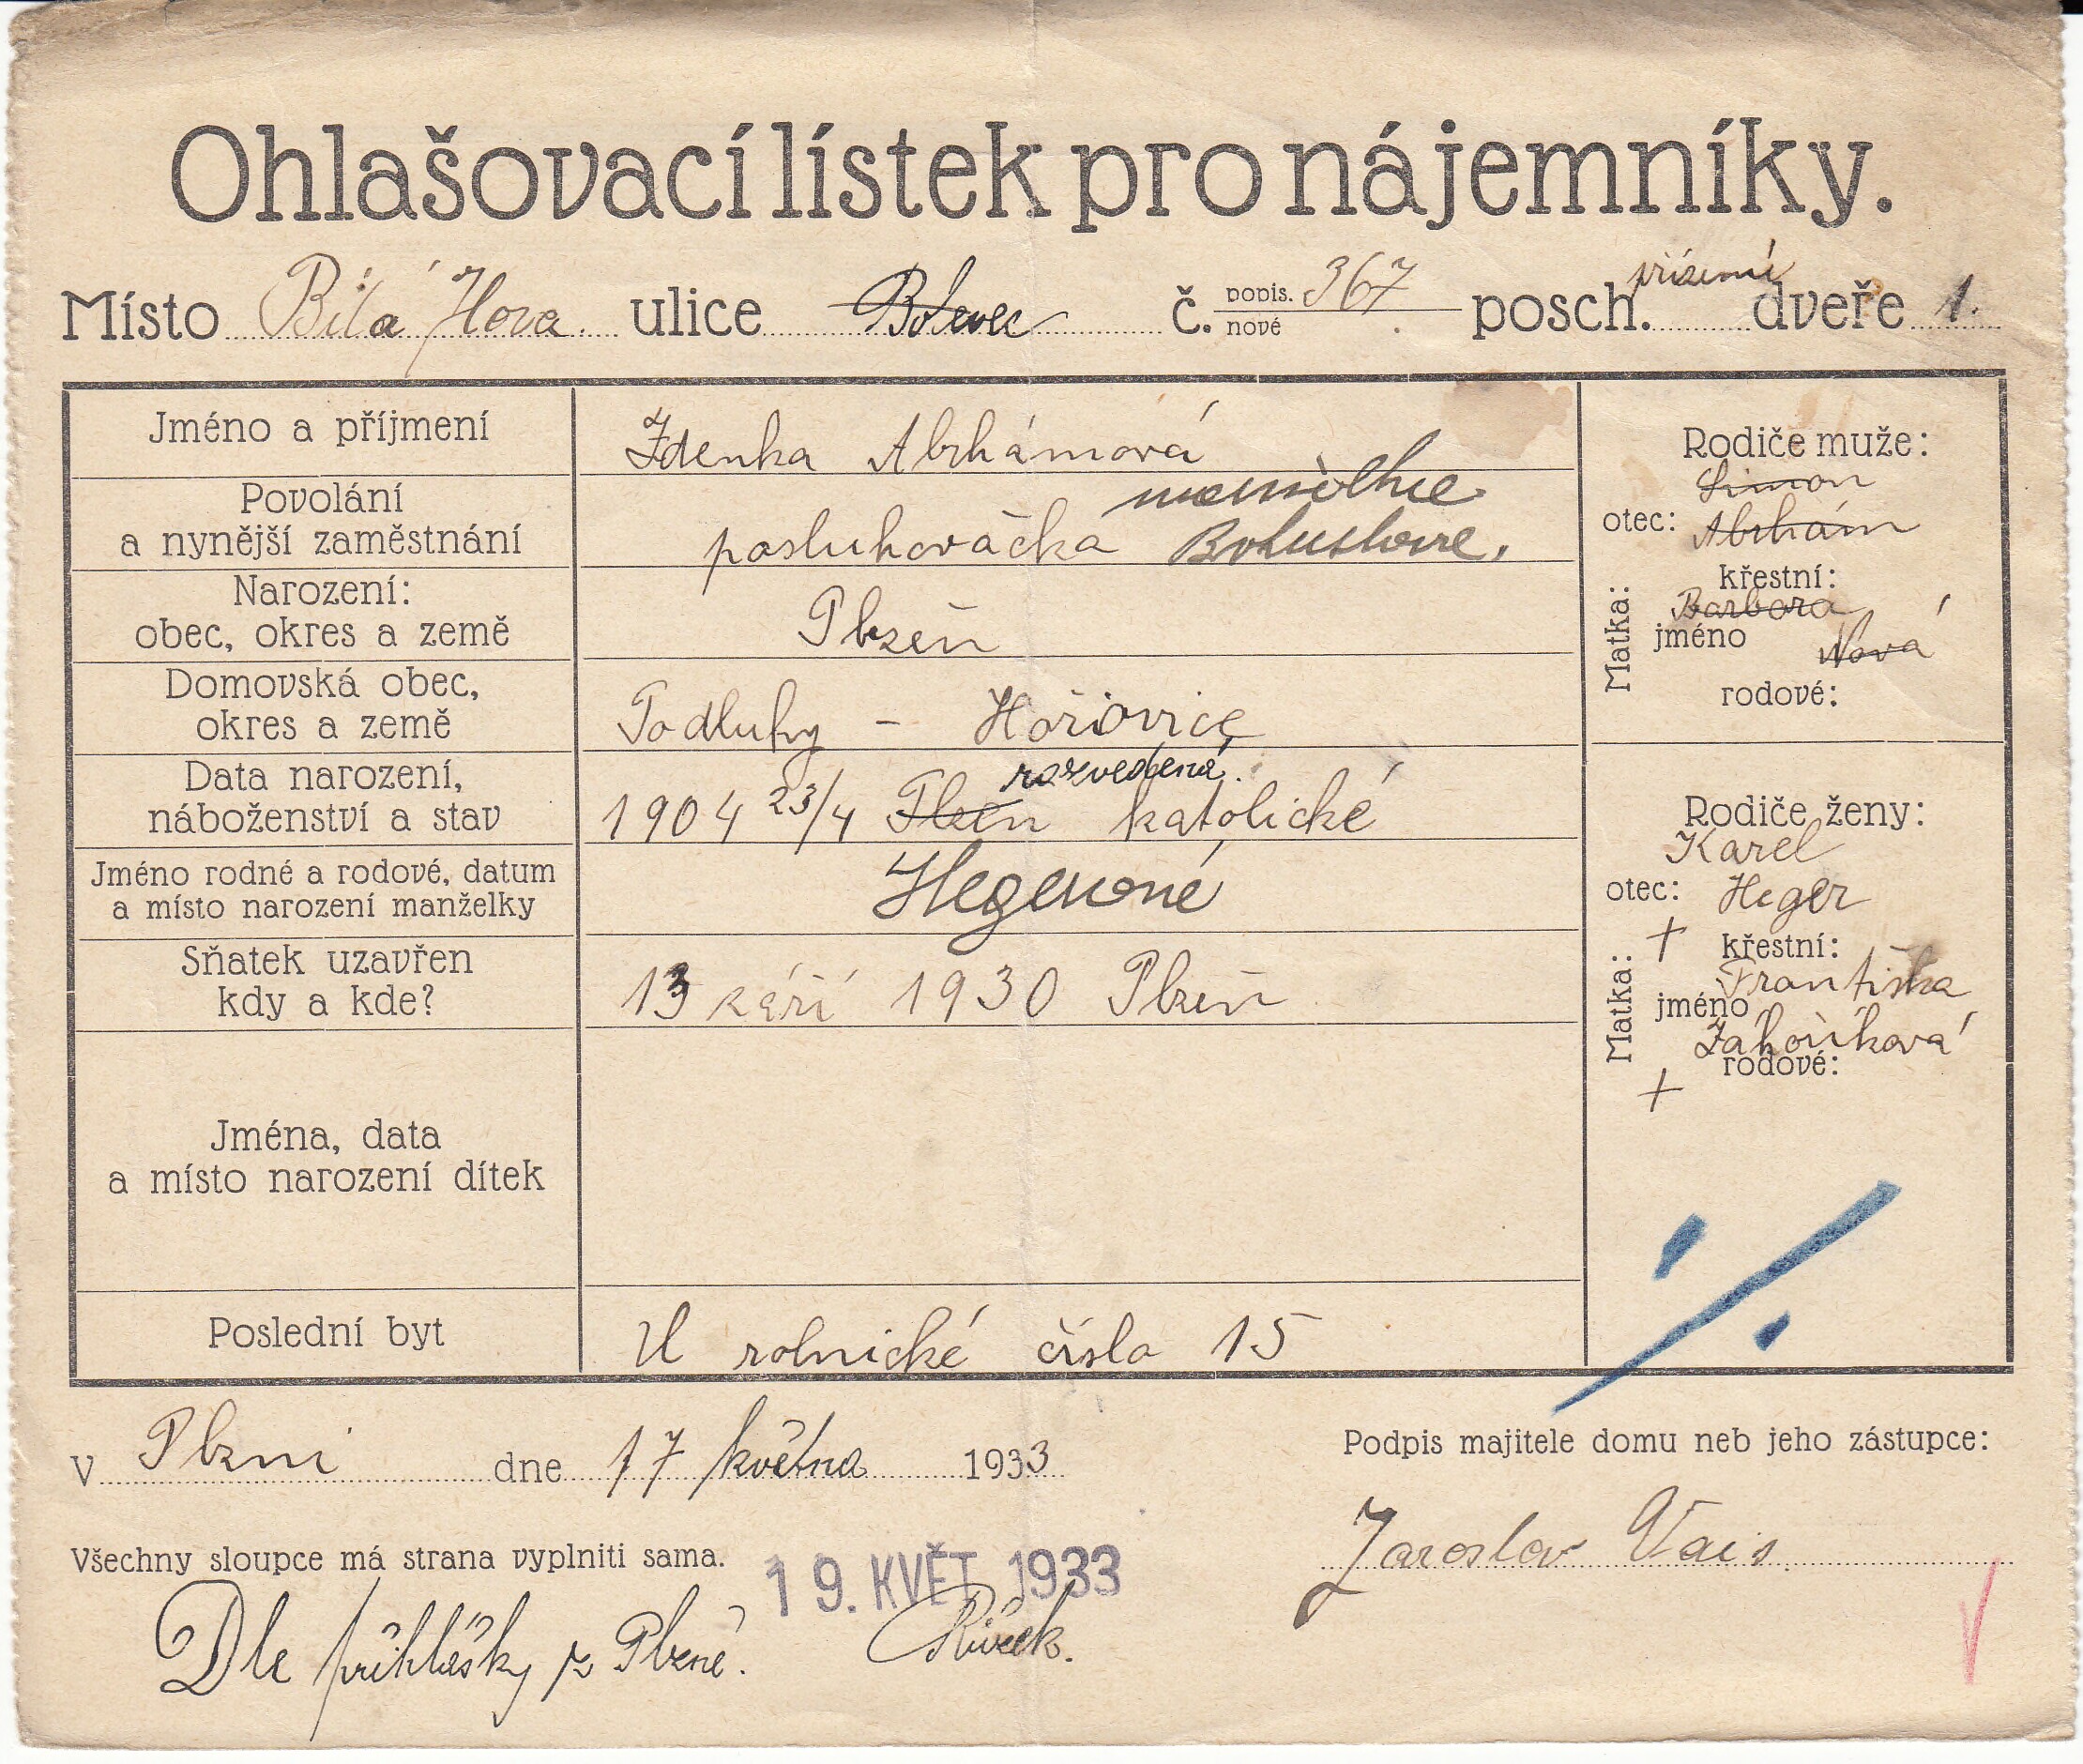 Ohlašovací lístek pro nájemníky.
Místo Bílá Hora ulice Bolevec č. popis. 367 nové posch. přízemí dveře 1.
Jméno a příjmení Zdenka Abrhámová
Povolání
a nynější zaměstnání posluhovačka
Narození:
obec, okres a země Plzeň
Domovská obec,
okres a země Podluhy - Hořovice
rozvedená.
Data narození,
náboženství a stav 1904 23/4 Plzeň katolické
Jméno rodné a rodové, datum
a místo narození manželky Hegerové
Sňatek uzavřen
kdy a kde? 13 září 1930 Plzeň
Jména, data
a místo narození dítek
Poslední byt U rolnické číslo 15
Rodiče muže:
Simon
otec: Abrhám
Matka: křestní:
Barbora
jméno Nová
rodové:
Rodiče ženy:
Karel
otec: Heger
+ křestní:
Matka: Františka
jméno
Záhoříková
rodové:
+
V Plzni dne 17 května 1933
Podpis majitele domu neb jeho zástupce:
Jaroslav Vais
Všechny sloupce má strana vyplniti sama.
19. KVĚT. 1933
Dle přihlášky z Plzně.